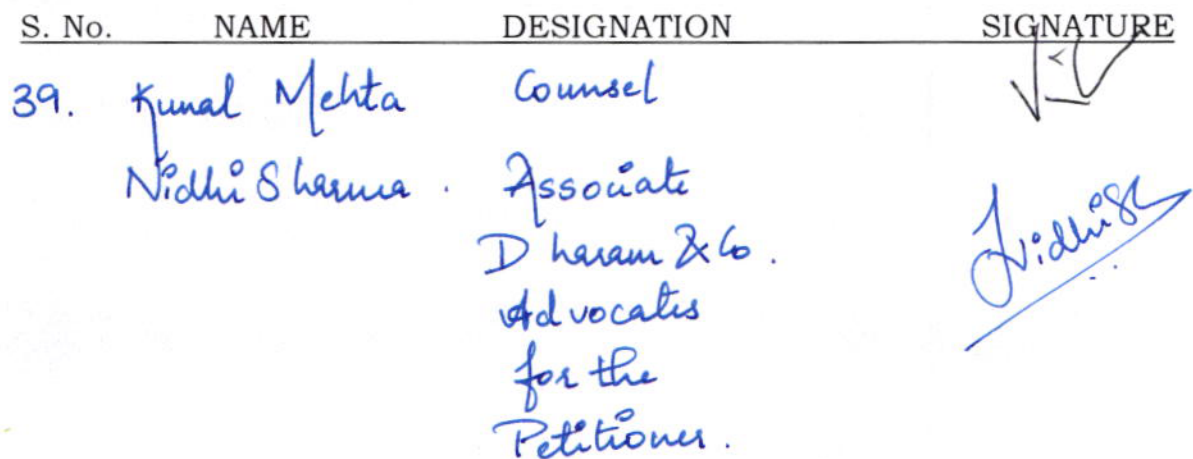 S. No. NAME DESIGNATION SIGNATURE
39. Kunal Mehta Counsel
Nidhi Sharma. Associate
Dharam & Co.
Advocates
for the
Petitioner.